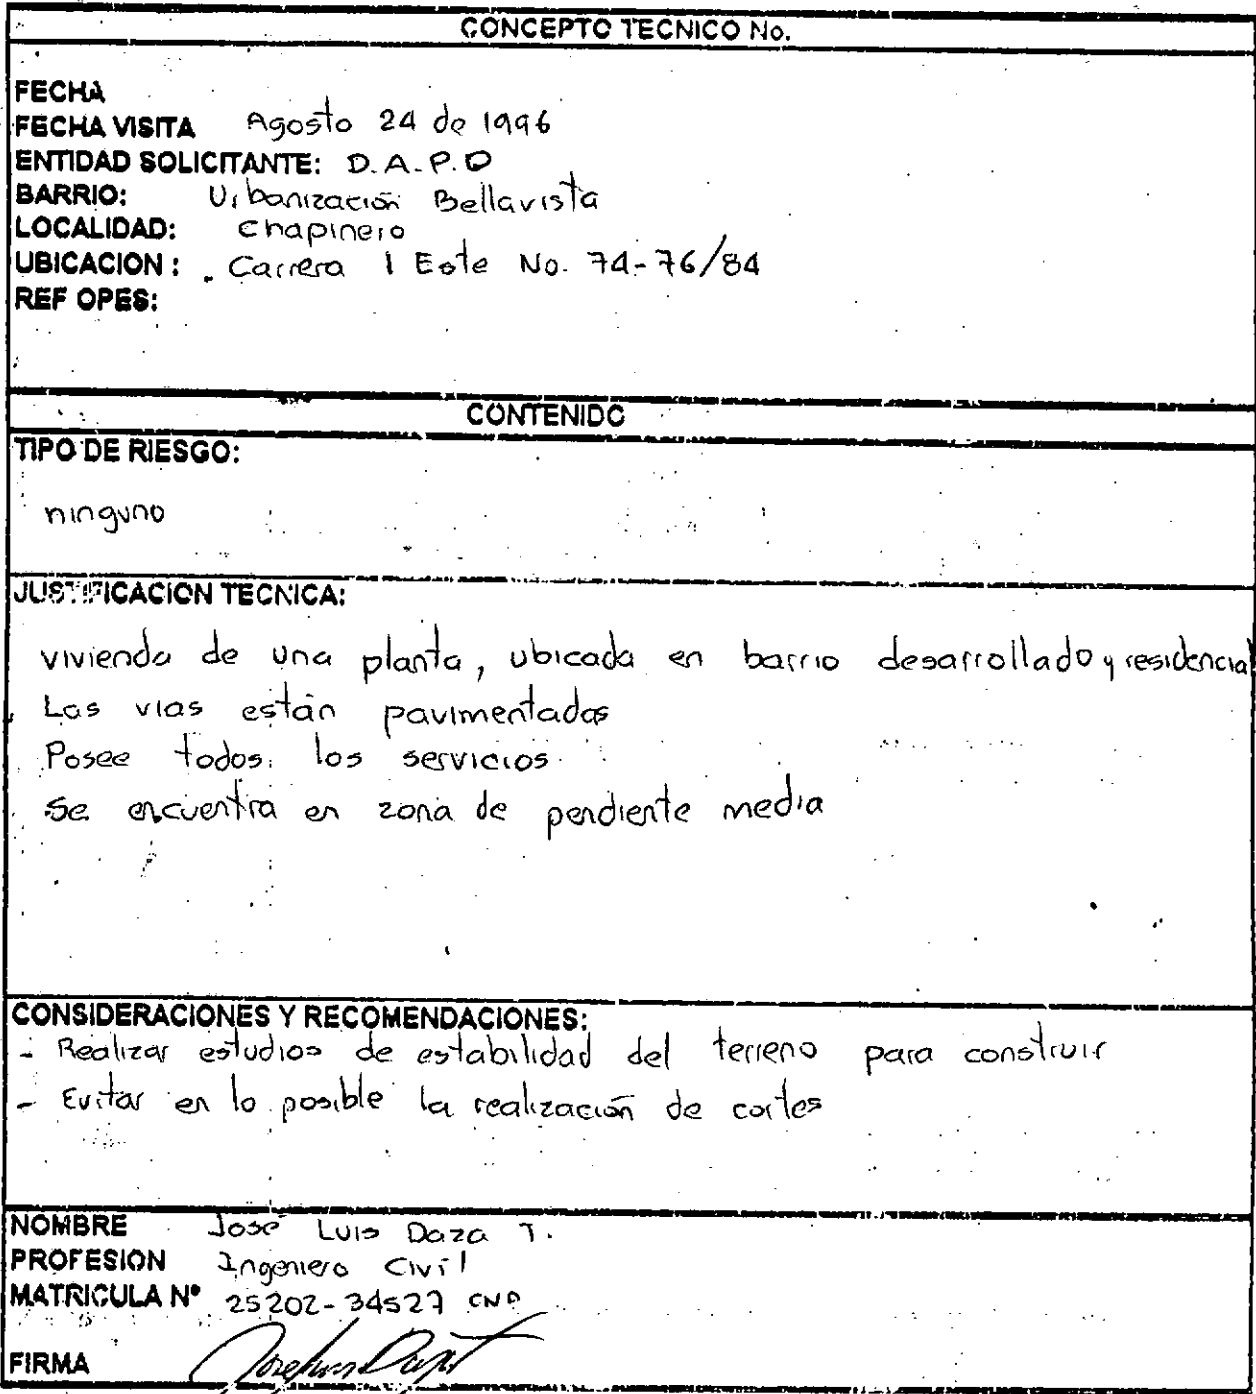 CONCEPTO TECNICO No.
FECHA
FECHA VISITA Agosto 24 de 1996
ENTIDAD SOLICITANTE: D.A.P.D
BARRIO: Urbanización Bellavista
LOCALIDAD: Chapinero
UBICACION: Carrera 1 Este No. 74-76/84
REF OPES:
CONTENIDO
TIPO DE RIESGO:
ninguno
JUSTIFICACION TECNICA:
vivienda de una planta, ubicada en barrio desarrollado y residencial
Las vias están pavimentadas
Posee todos los servicios
Se encuentra en zona de pendiente media
CONSIDERACIONES Y RECOMENDACIONES:
- Realizar estudios de estabilidad del terreno para construir
- Evitar en lo posible la realización de cortes
NOMBRE José Luis Daza T.
PROFESION Ingeniero Civil
MATRICULA Nº 25202-34527 CND
FIRMA